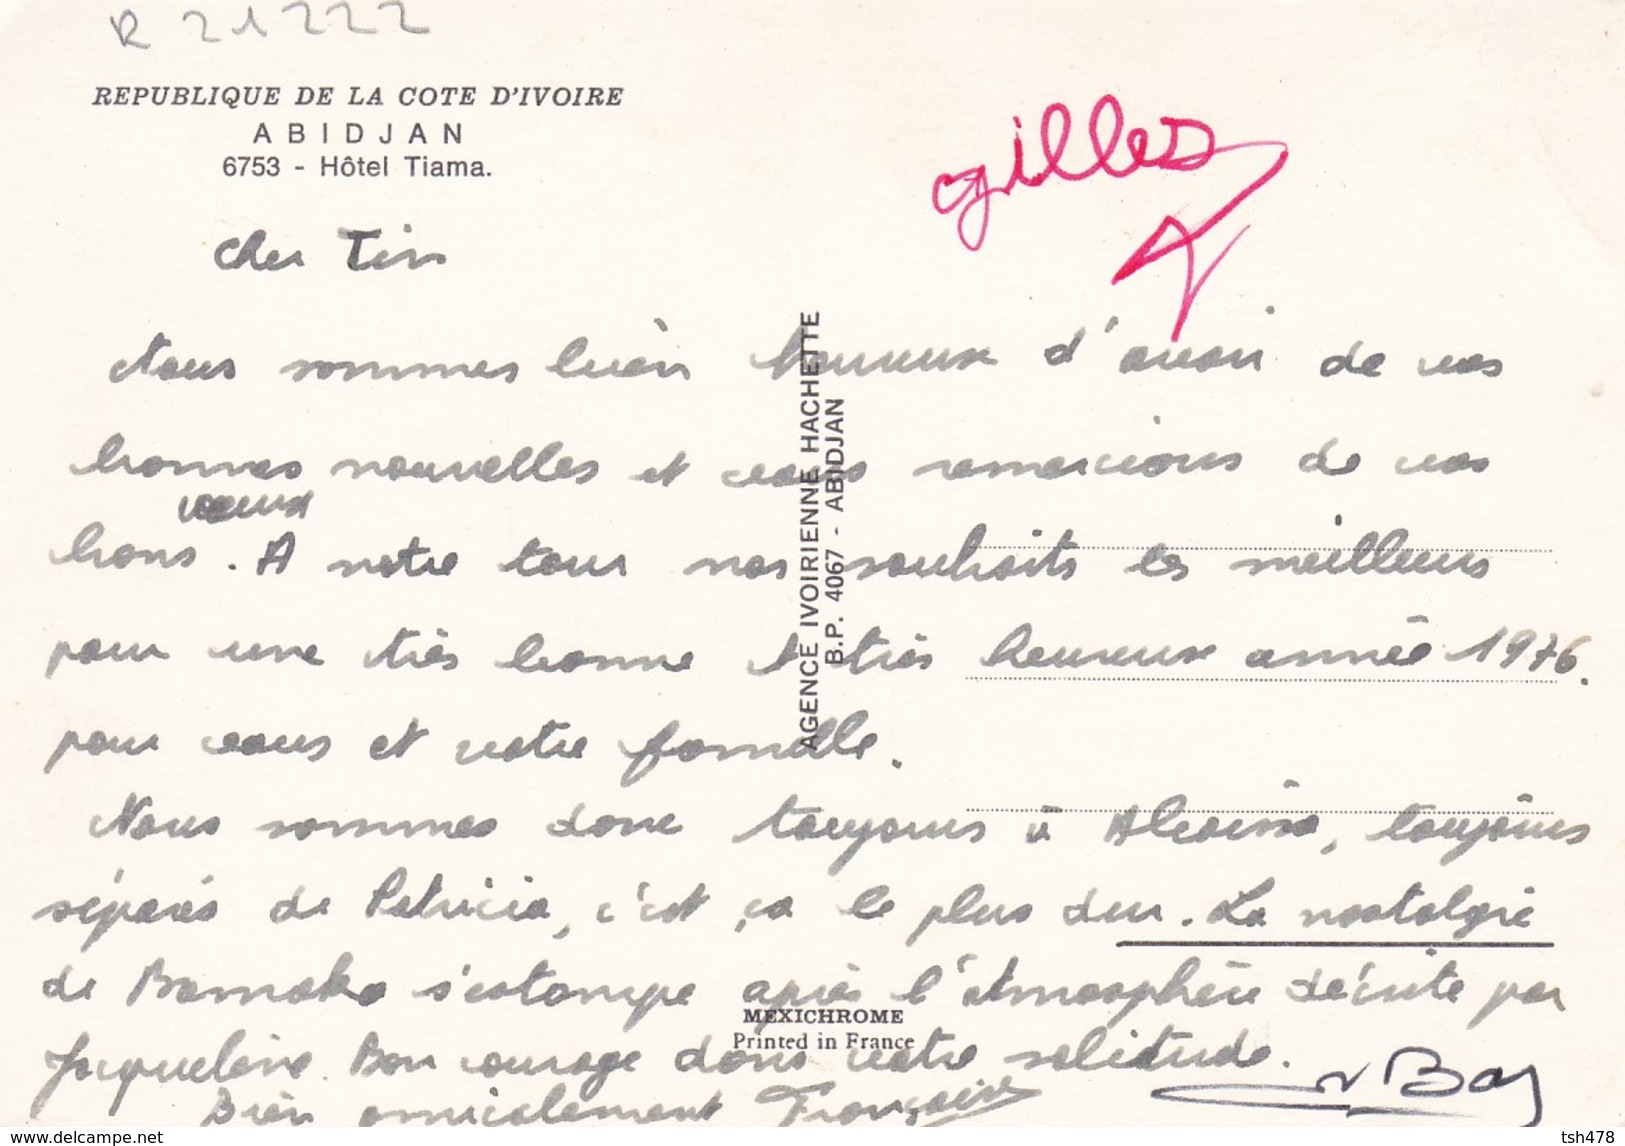 R 21222
REPUBLIQUE DE LA COTE D'IVOIRE
ABIDJAN
6753 - Hôtel Tiama.
gilles
Cher Tin
Nous sommes bien heureux d'avoir de vos
bonnes nouvelles et vous remercions de vos
bons voeux. A notre tour nos souhaits les meilleurs
pour une très bonne et très heureuse année 1976.
pour vous et votre famille.
Nous sommes donc toujours à, toujours
séparés de Patricia, c'est ça le plus dur. La nostalgie
de Bamako s'estompe après l'atmosphère décrite par
Jacqueline. Bon courage dans votre solitude.
Bien amicalement Françoise
AGENCE IVOIRIENNE HACHETTE
B.P. 4067 - ABIDJAN
MEXICHROME
Printed in France
tsh478